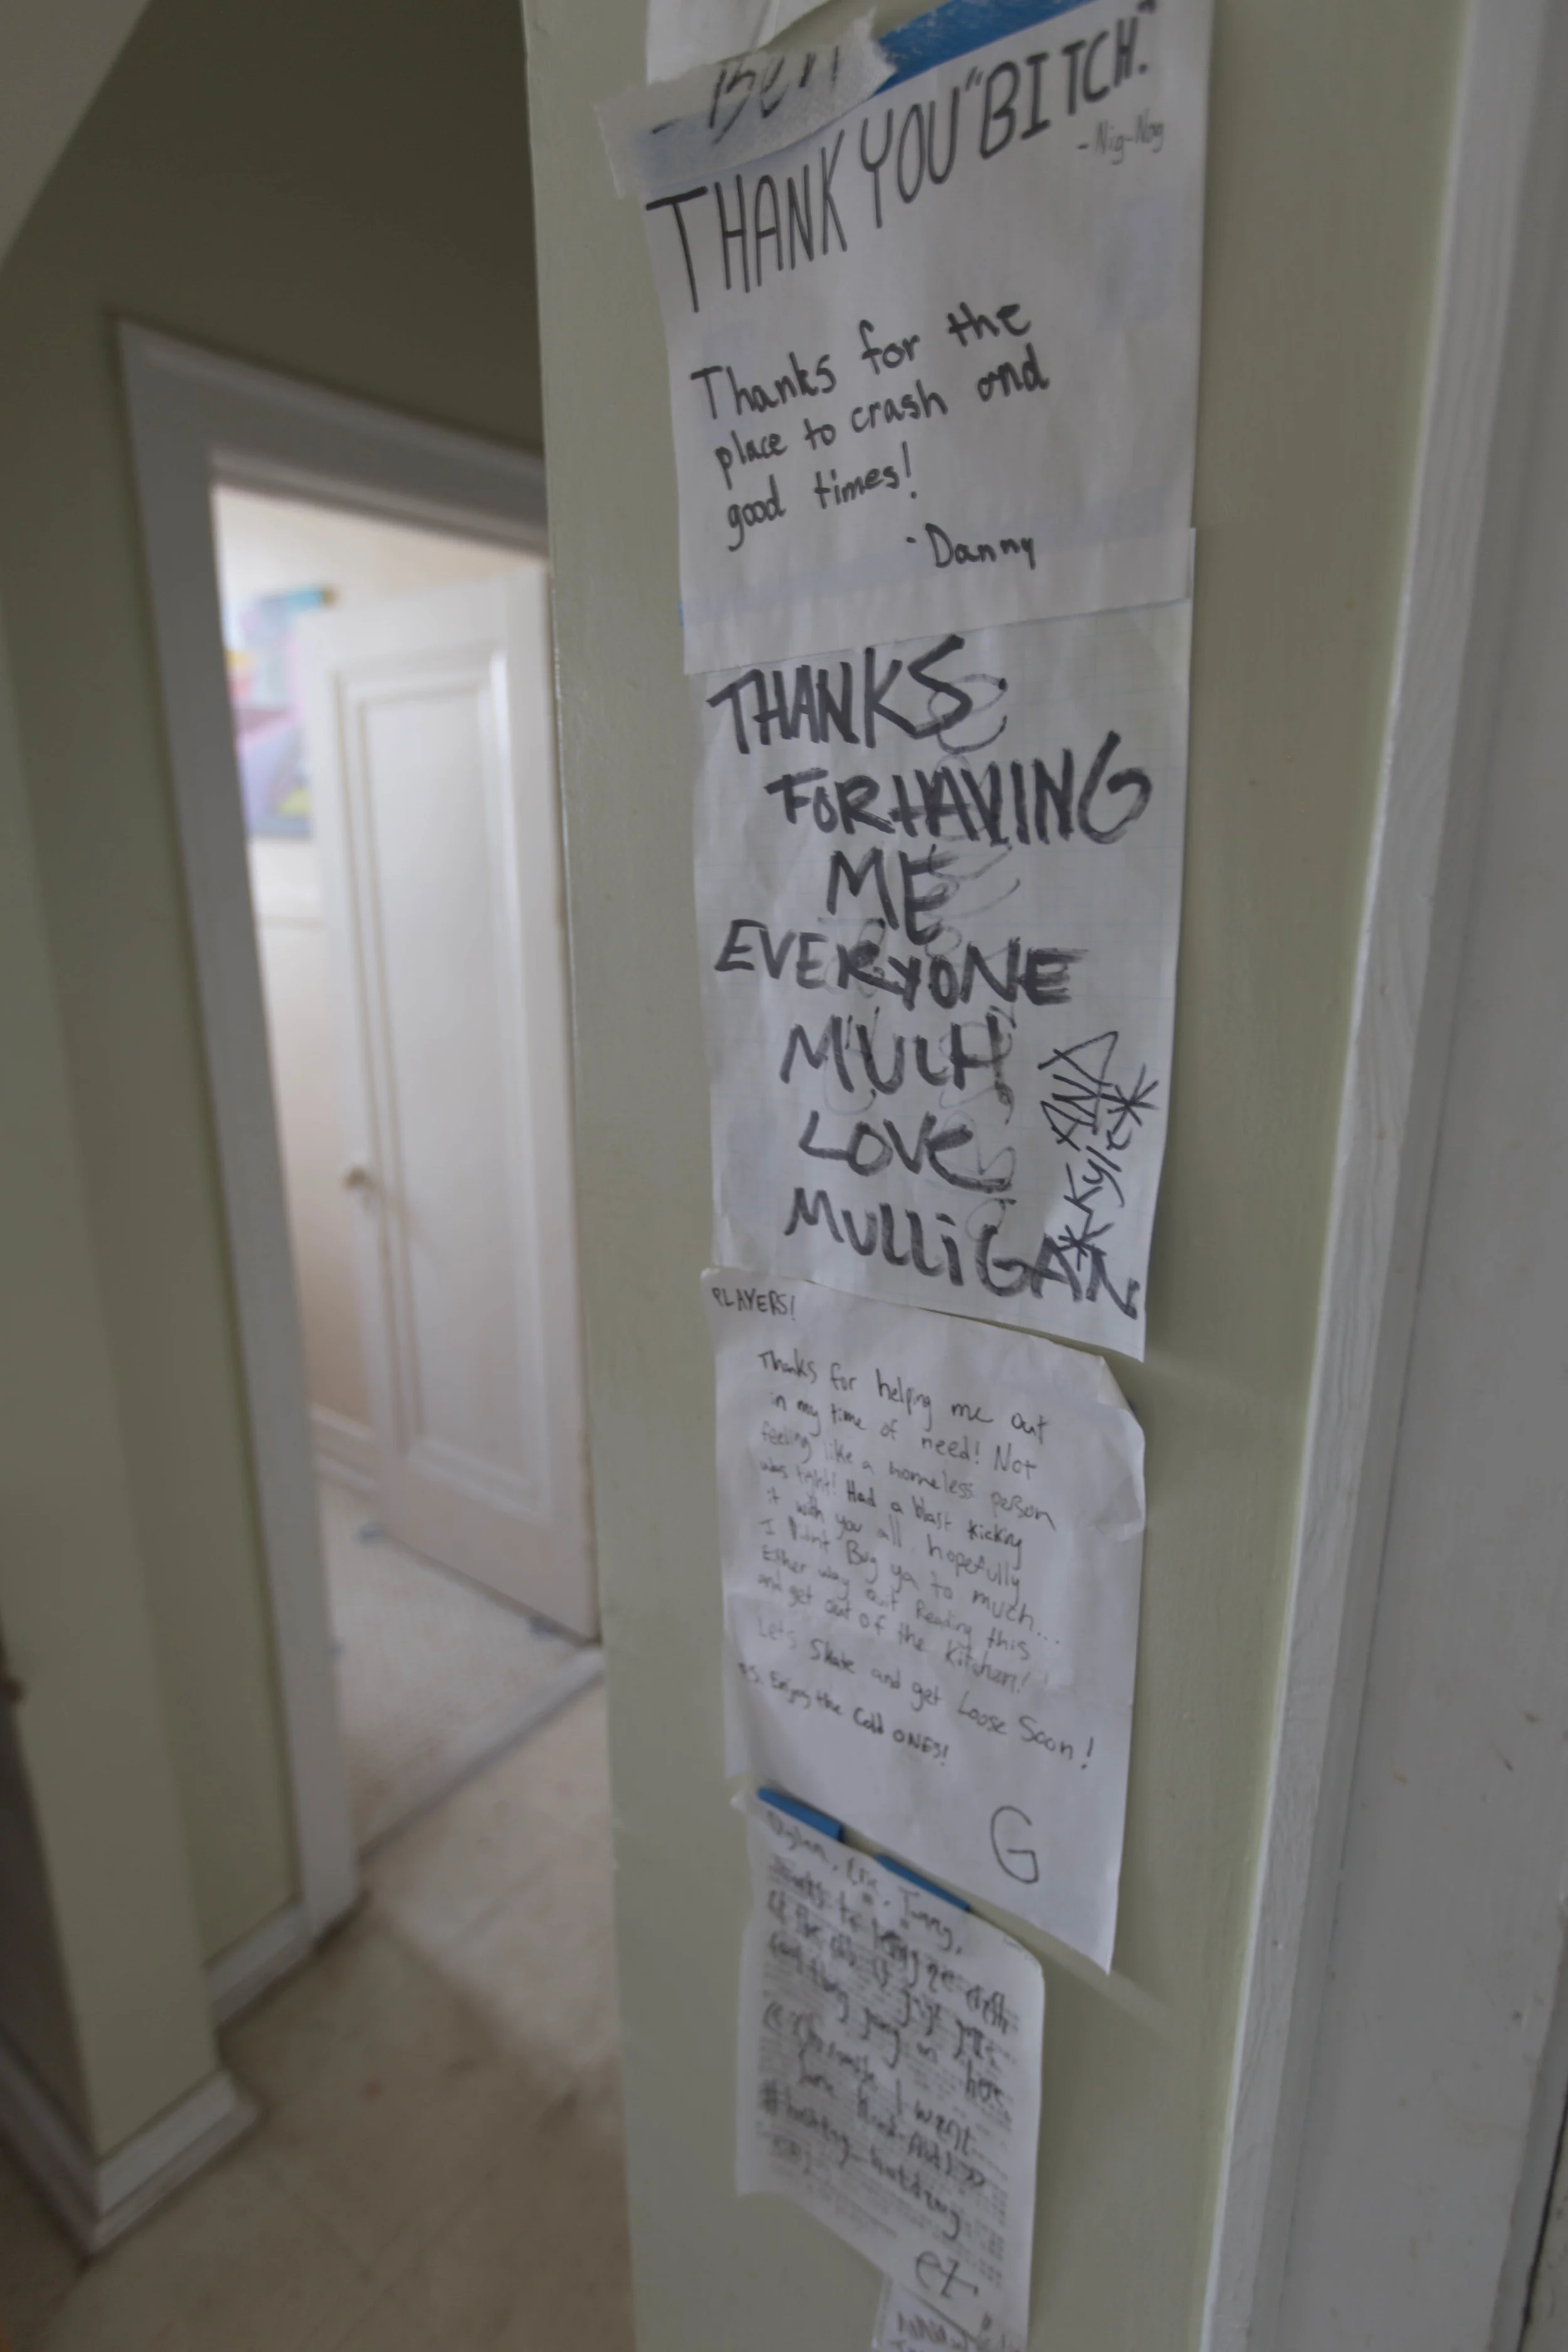 - Ben
THANK YOU "BITCH."
- Nig-Nog
Thanks for the
place to crash and
good times!
- Danny
THANKS
FOR HAVING
ME
EVERYONE
MUCH
LOVE
MULLIGAN
AND
*Kyle*
PLAYERS!
Thanks for helping me out
in my time of need! Not
feeling like a homeless person
was tight! Had a blast kicking
it with you all, hopefully
I Didnt Bug ya to much...
Either way quit Reading this
and get out of the Kitchen!
Lets Skate and get Loose Soon!
P.S. Enjoy the Cold ONES!
G
Eric,
going on here
I went
ez.